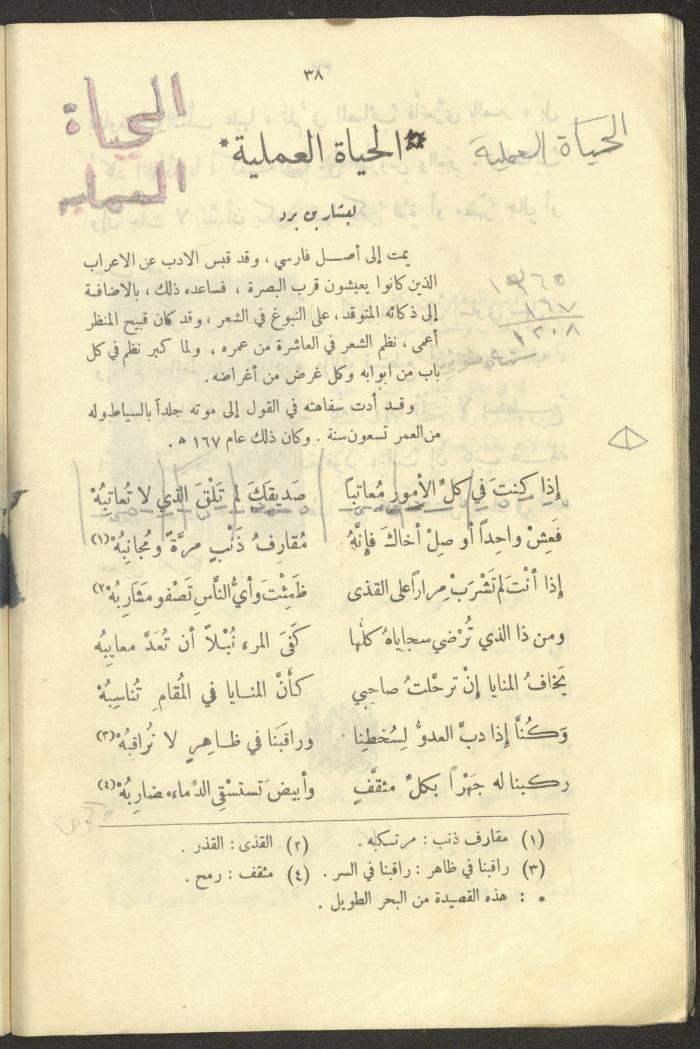 ٣٨
الحياة
العملية
الحياة العملية
**الحياة العملية*
لبشار بن برد
يمت إلى أصل فارسي ، وقد قبس الادب عن الاعراب
الذين كانوا يعيشون قرب البصرة ، فساعده ذلك ، بالاضافة
إلى ذكائه المتوقد، على النبوغ في الشعر ، وقد كان قبيح المنظر
أعمى ، نظم الشعر في العاشرة من عمره ، ولما كبر نظم في كل
باب من ابوابه وكل غرض من أغراضه .
وقد أدت سفاهته في القول إلى موته جلداً بالسياط وله
من العمر تسعون سنة . وكان ذلك عام ١٦٧ ه .
إذا كنتَ في كلِّ الأمور مُعاتِباً صَديقَكَ لم تَلْقَ الذي لا تُعاتِبُهْ
فَعِشْ واحِداً أو صِلْ أخاكَ فإنَّهُ مُقارِفُ ذَنْبٍ مرَّةً ومُجانِبُهْ (١)
إذا أنْتَ لم تَشْرَبْ مِراراً على القذى ظَمِئْتَ وأيُّ النَّاسِ تَصْفو مَشَارِبُهْ (٢)
ومن ذا الذي تُرْضي سجاياهُ كلُّها كَفَى المرء نُبْلاً أن تُعَدَّ معايبُه
يَخافُ المنايا إنْ ترحَّلتُ صاحبي كأنَّ المنايا في المُقامِ تُناسِبُهْ
وَكُنَّا إذا دبَّ العدوُّ لِسُخطِنا وراقَبَنا في ظاهِرٍ لا نُراقِبُهْ (٣)
ركبنا له جَهْراً بكلِّ مثقَّفٍ وأبيضَ تَستسْقي الدِّماءَ مضارِبُهْ (٤)
(١) مقارف ذنب : مرتكبه . (٢) القذى : القذر .
(٣) راقبنا في ظاهر : راقبنا في السر . (٤) مثقف : رمح .
* : هذه القصيدة من البحر الطويل .